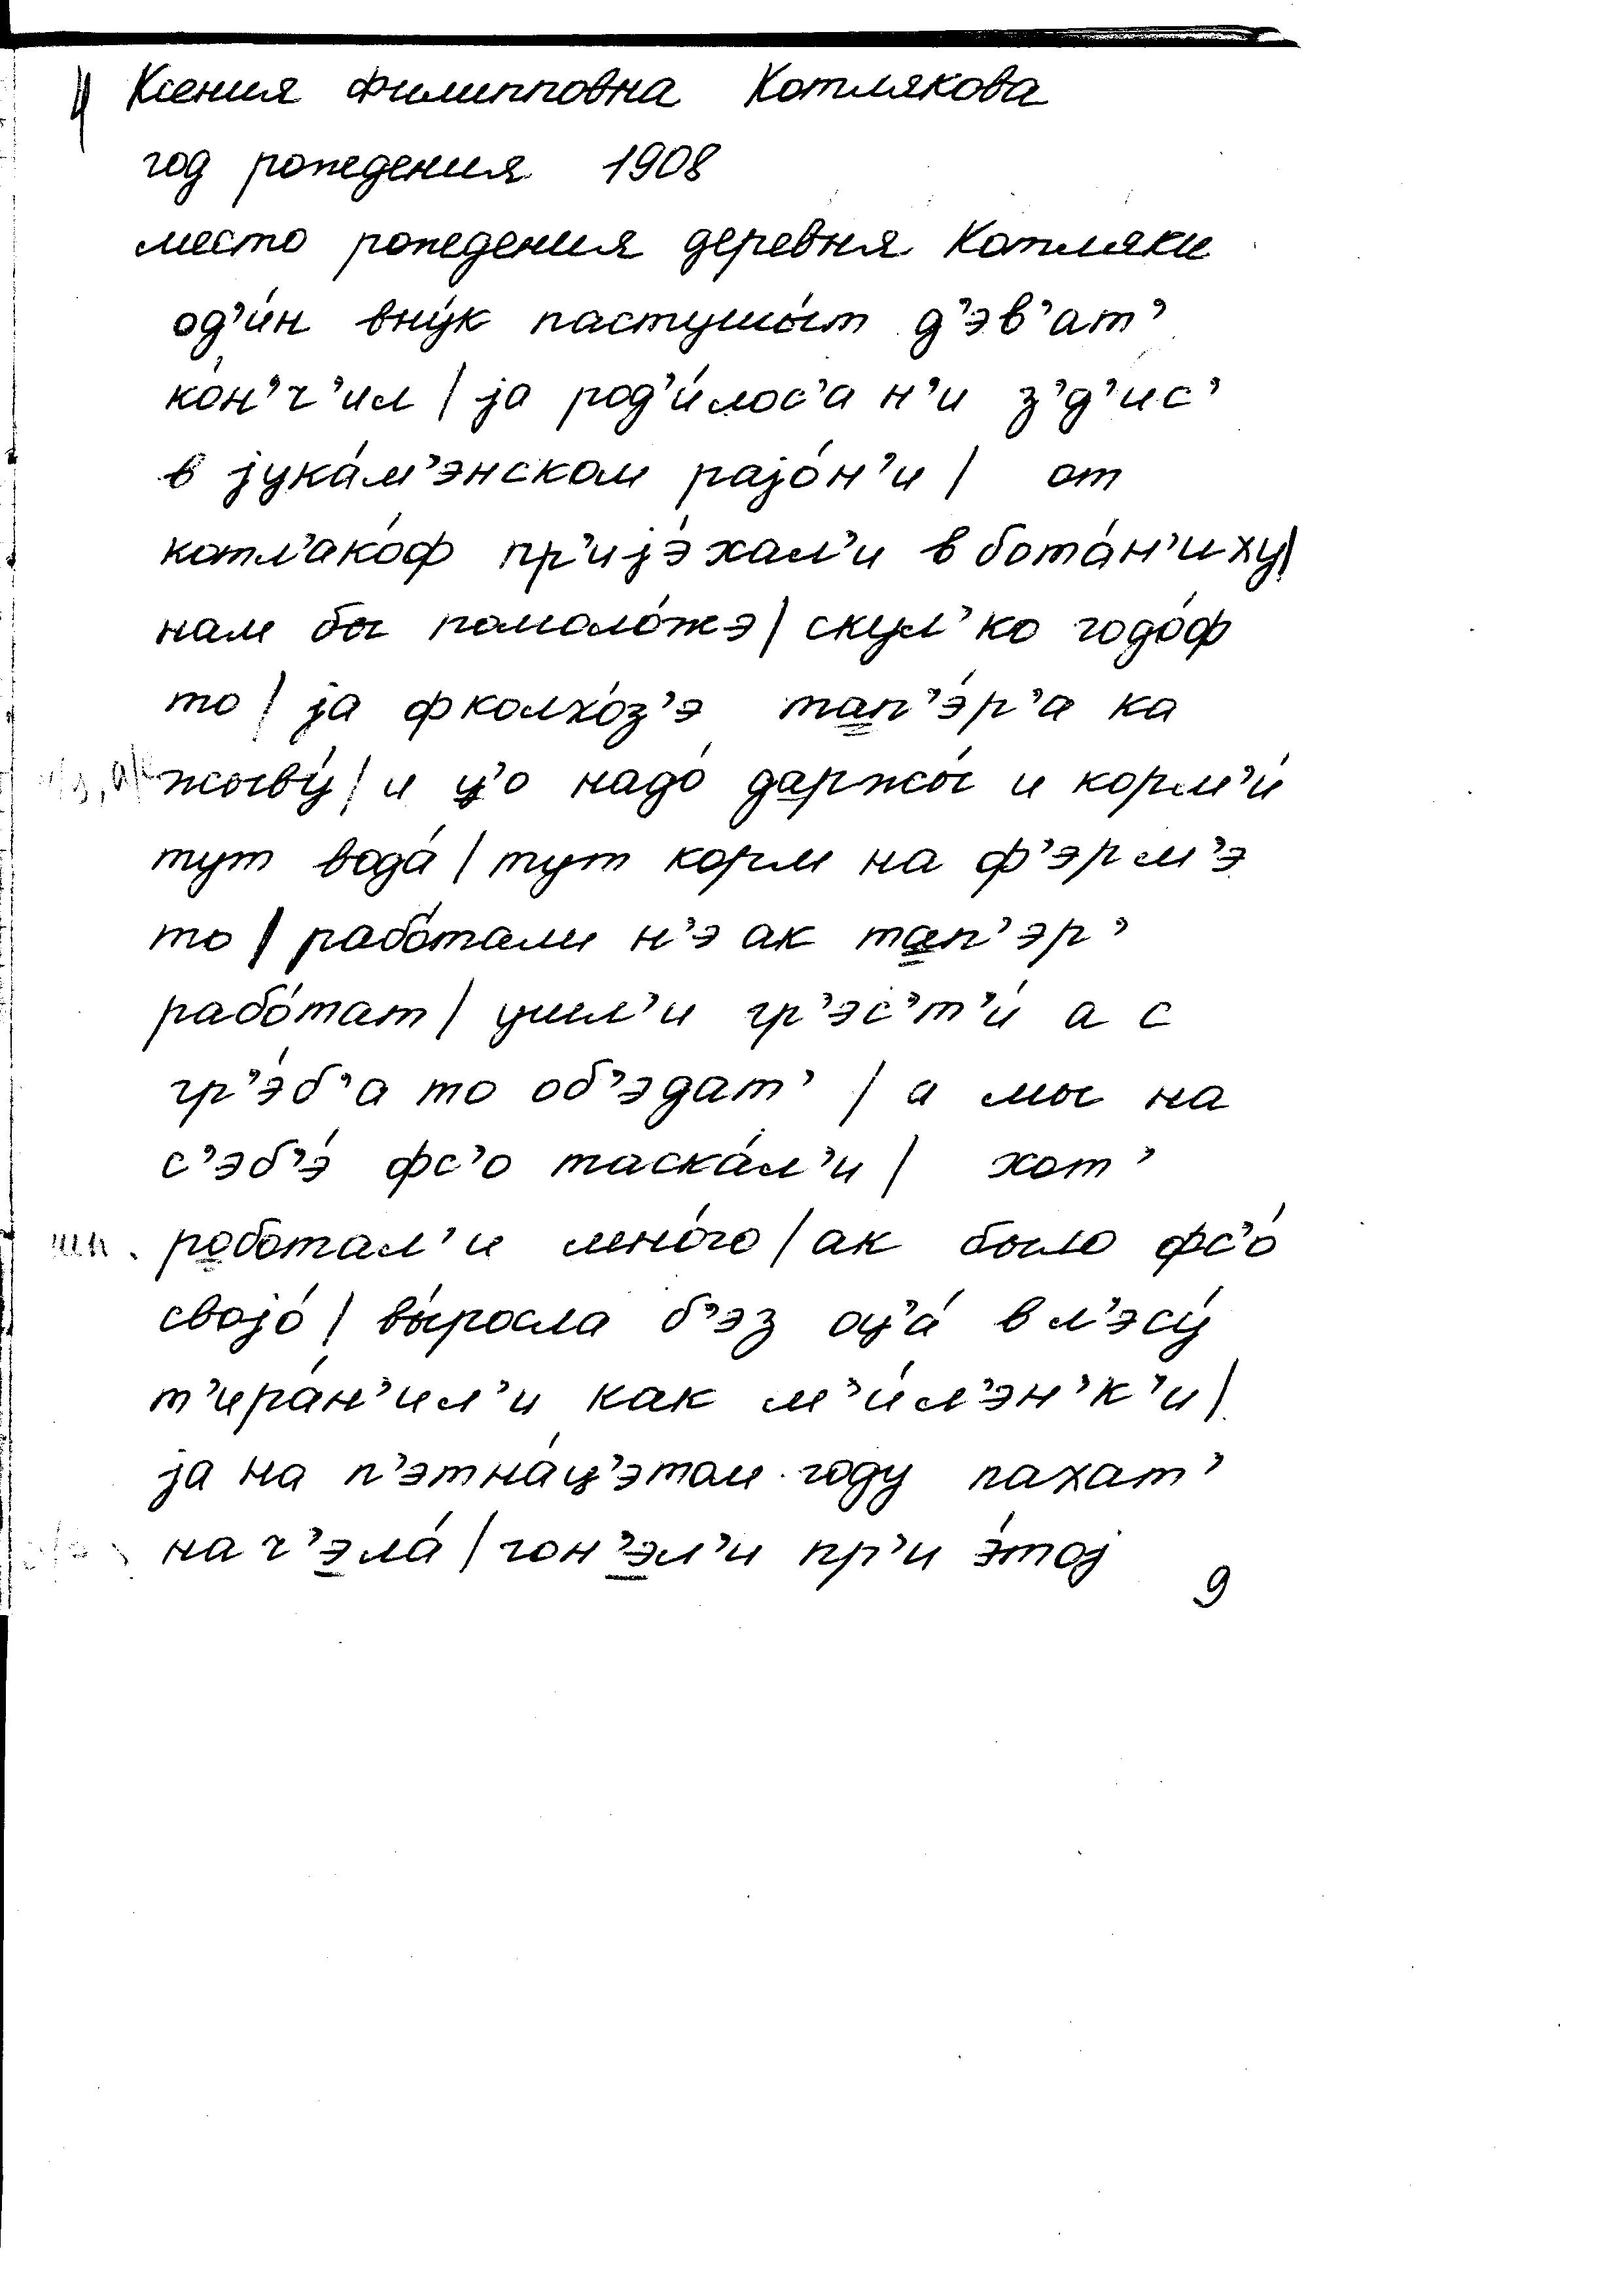 Ксения Филипповна Котлякова
год рождения 1908
место рождения деревня Котляки
од’и́н вну́к пастушы́т д’эв’ат’
ко́н’ч’ил | jа род’и́лос’а н’и з’д’ис’
в jука́м’энском раjо́н’и | от
котл’ако́ф пр’иjэ́хал’и в бота́н’иху|
нам бы помоло́жэ | скул’ко годо́ф
то | jа ф колхо́з’э тап’э́р’а ка
жыву́ | и ц’о надо́ даржы́ и корм’и́
тут вода́ | тут корм на ф’эрм’э
то | рабо́тали н’э ак тап’эр’
рабо́тат | ушл’и гр’эс’т’и́ а с
гр’э́б’а то об’эдат’ | а мы на
с’эб’э́ фс’о таска́л’и | хот’
роботал’и мно́го | ак было фс’о́
своjо́ | вы́росла б’эз оц’а́ в л’эсу́
т’ира́н’ил’и как м’и́л’эн’к’и |
jа на п’этна́ц’этом году пахат’
нач’эла́ | гон’эл’и пр’и э́тоj
9